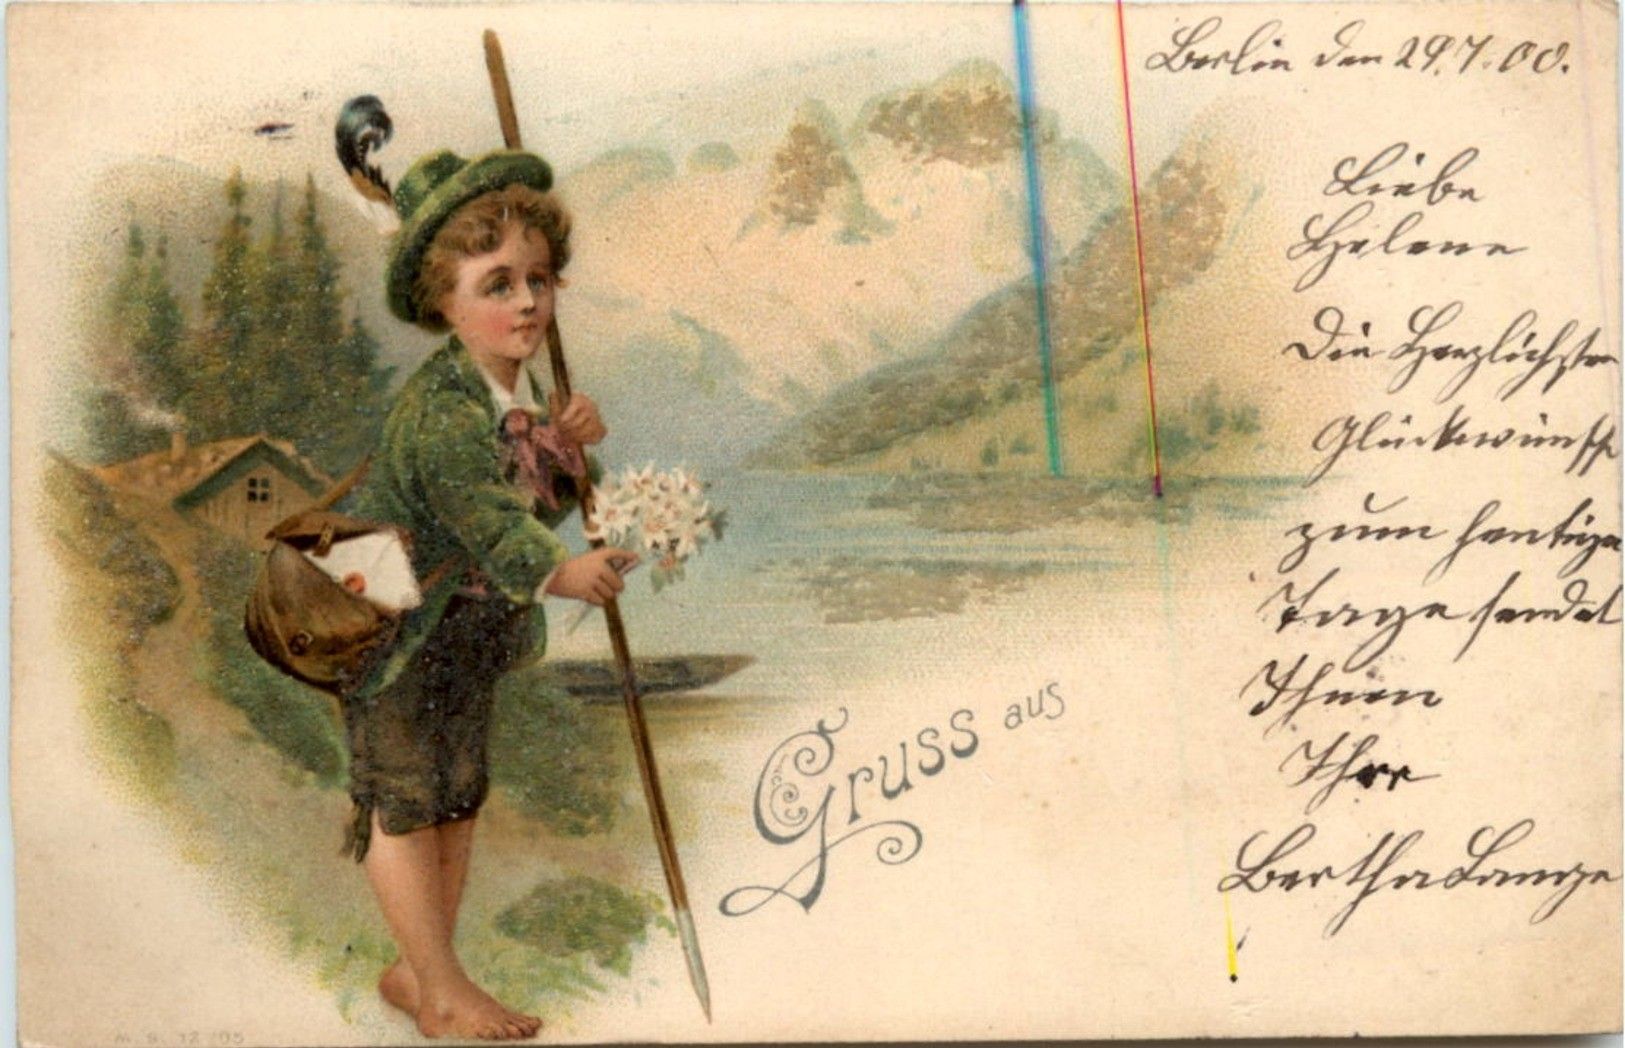 Berlin den 29.7.00.
Liebe
Helene
Die Herzlichsten
Glückwünsche
zum heutigen
Tage sendet
Ihnen
Ihre
Bertha Lange
Gruss aus